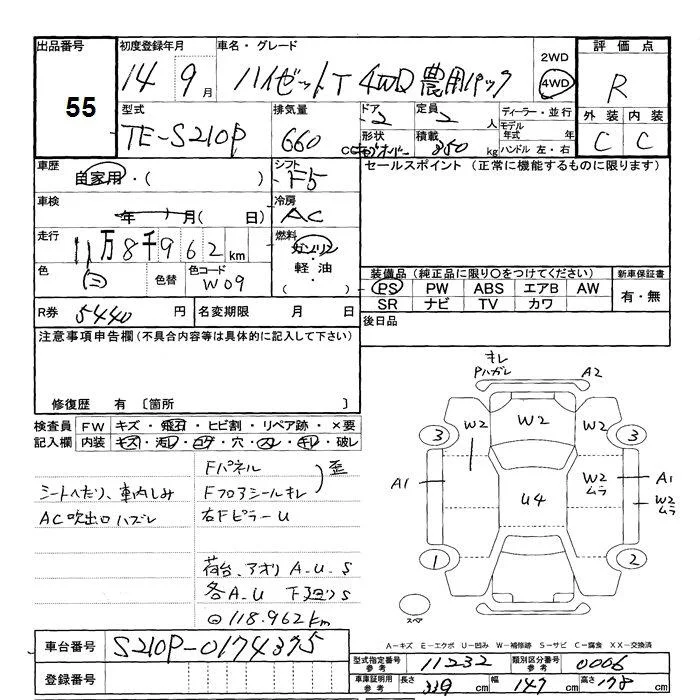 出品番号
55
初度登録年月
14 9月
車名・グレード
ハイゼットT 4WD 農用パック
2WD
4WD
評価点
R
外装 内装
C C
型式
TE-S210P
排気量
660
ドア
2
定員
2人
形状
積載
850kg
ディーラー・並行
モデル年式 年
ハンドル 左・右
車歴
自家用・( )
シフト
F5
セールスポイント(正常に機能するものに限ります)
車検
年 月( 日)
冷房
AC
走行
11万8千962km
燃料
ガソリン・軽油
( )
色
白
色替
色コード
W09
装備品(純正品に限り○をつけてください)
新車保証書
PS PW ABS エアB AW
有・無
SR ナビ TV カワ
R券 5440円
名変期限 月 日
後日品
注意事項申告欄(不具合内容等は具体的に記入して下さい)
修復歴 有〔箇所 〕
検査員記入欄
FW キズ・飛石・ヒビ割・リペア跡・×要
内装 キズ・汚レ・コゲ・穴・スレ・キレ・破レ
Fパネル
Fフロアシールキレ
歪
シートへたり、車内しみ
AC吹出口ハズレ
右FピラーU
荷台、アオリ A_U_S
各A_U 下廻りS
118.962km
キレ
PハガレA2
3
W2
W2
W2
3
A1
U4
W2
ムラ
A1
W2
ムラ
1
2
スペア
A-キズ E-エクボ U-凹み W-補修跡 S-サビ C-腐食 XX-交換済
車台番号
S210P-0174375
登録番号
型式指定番号参考 11232
類別区分番号参考 0006
車庫証明用参考
長さ 339cm
幅 147cm
高さ 178cm